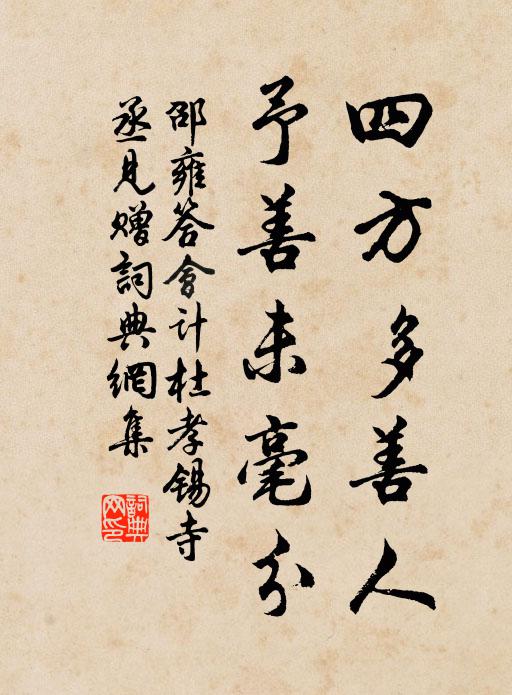 四方多善人
予善未毫分
邵雍答會計杜孝錫寺
丞見贈詞典網集
詞典网印